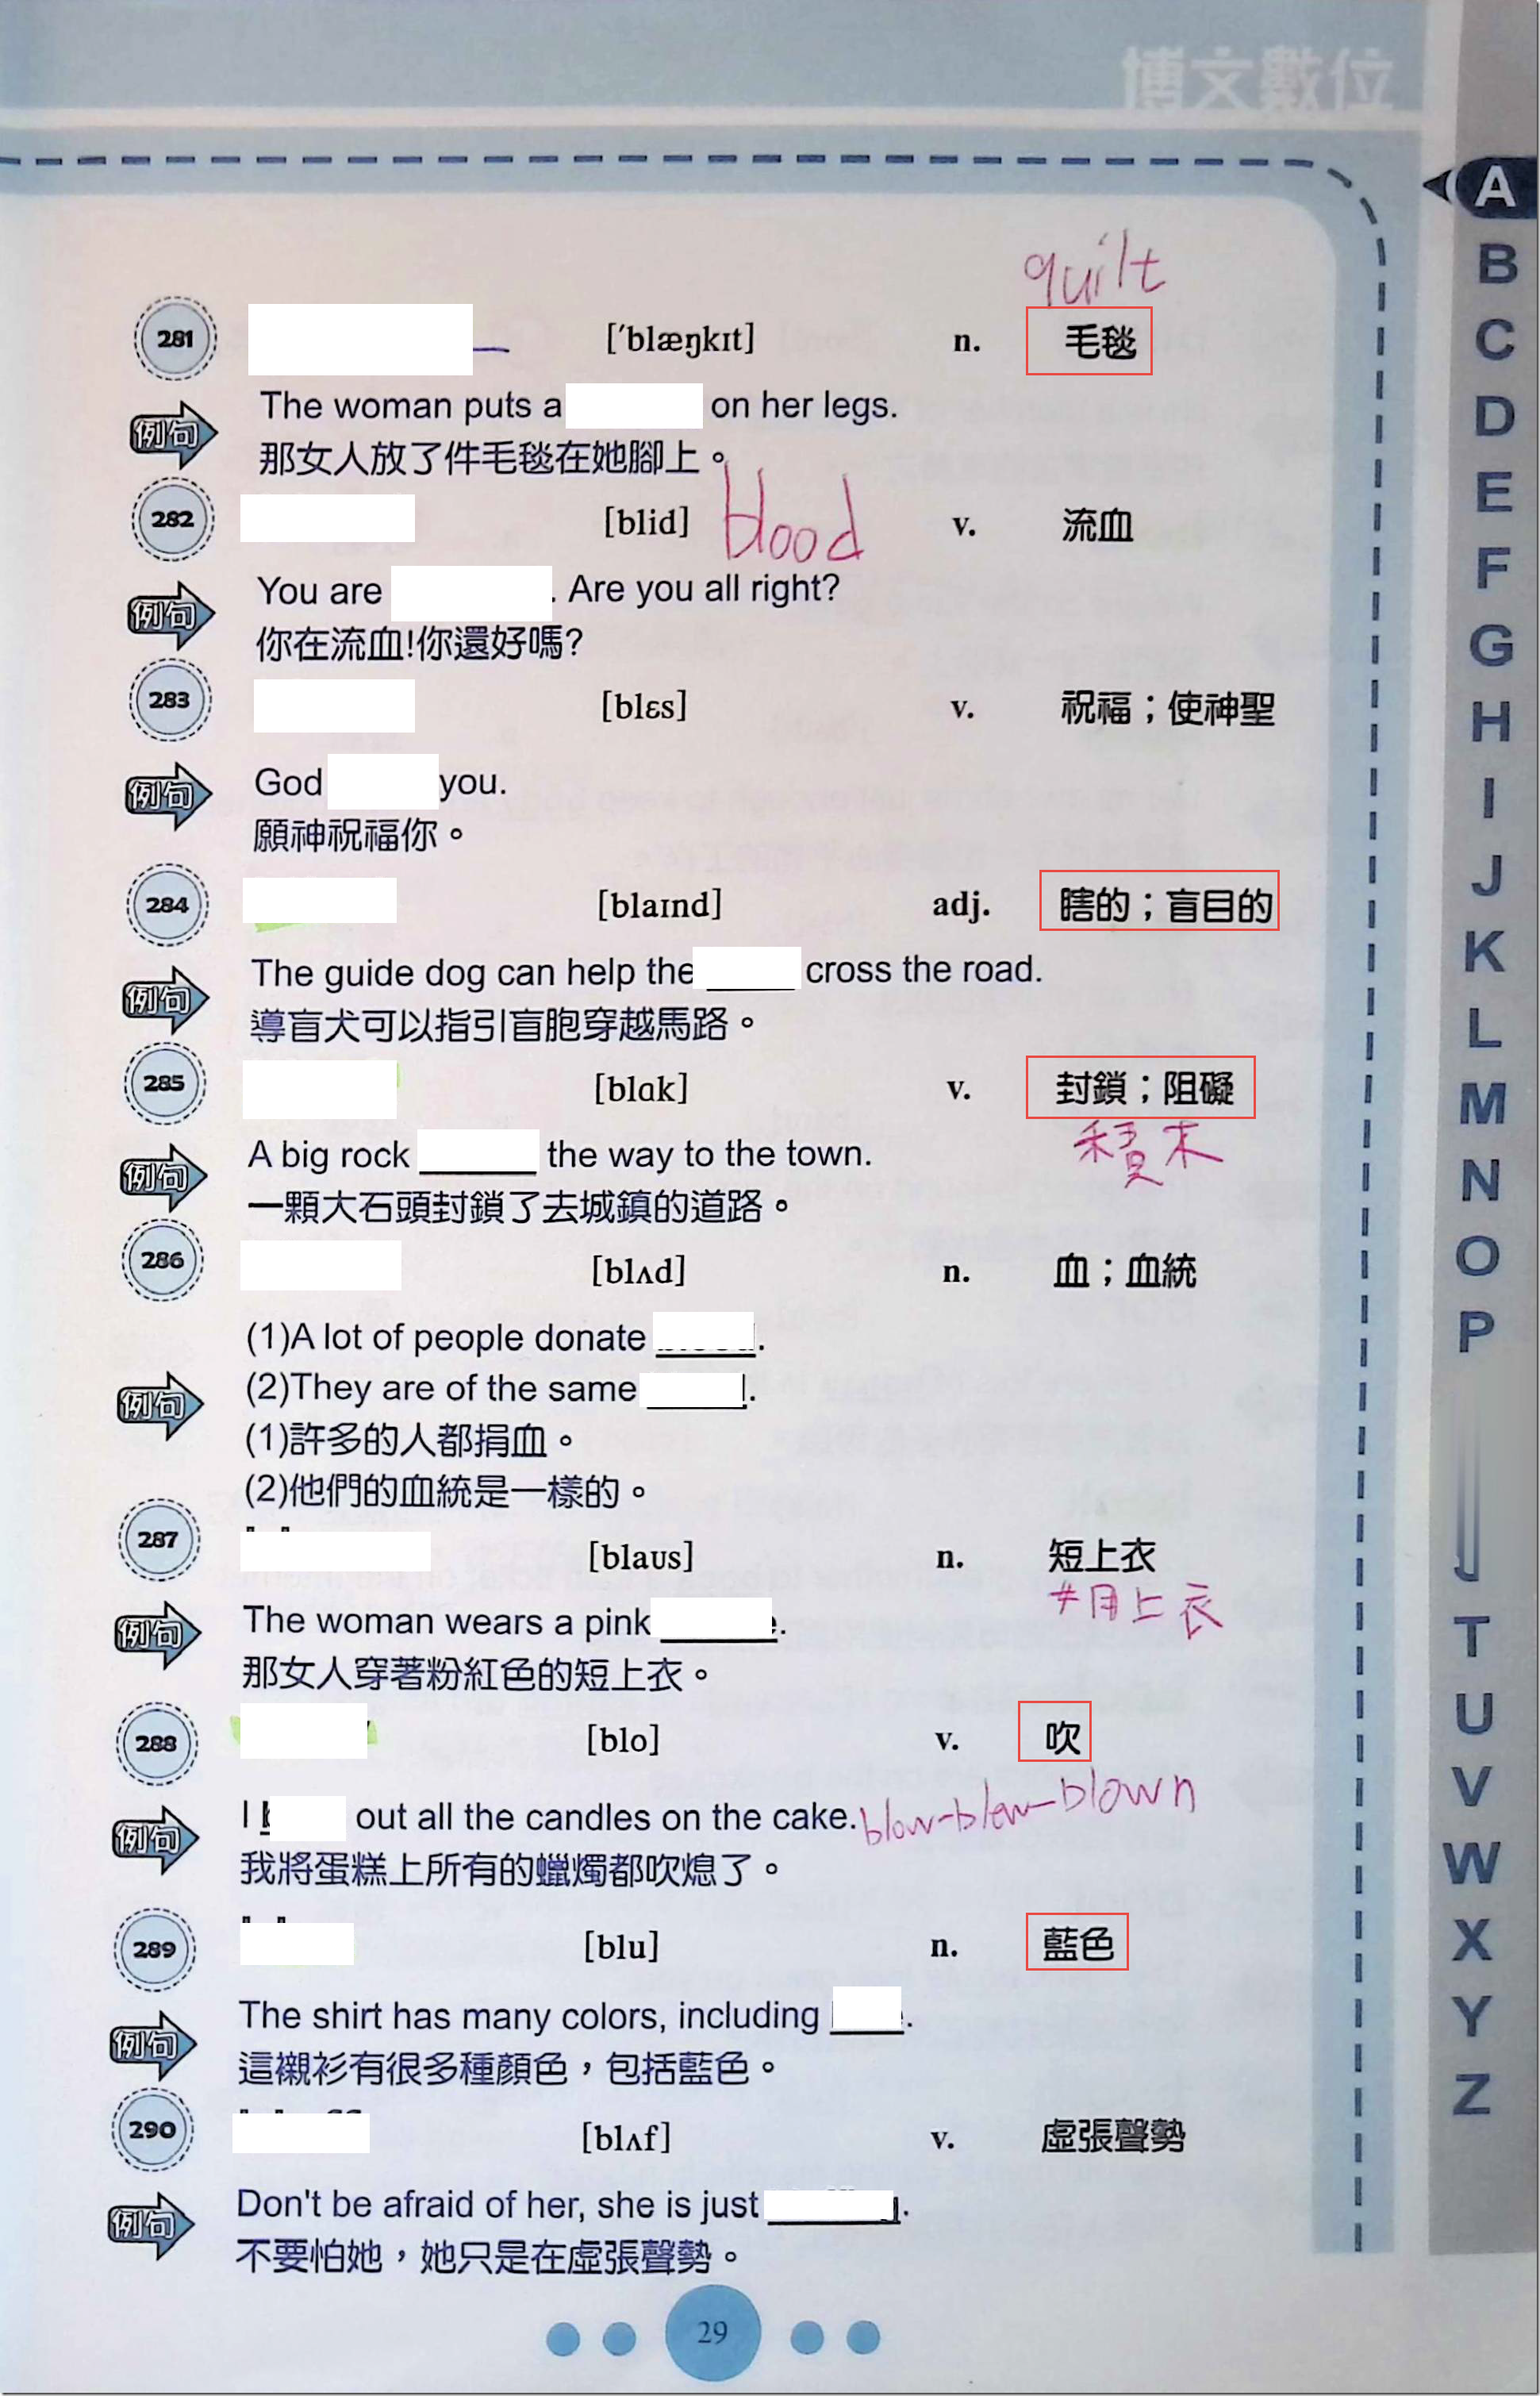 博文數位
A
B
C
D
E
F
G
H
I
J
K
L
M
N
O
P
T
U
V
W
X
Y
Z
quilt
281 [ˈblæŋkɪt] n. 毛毯
例句 The woman puts a on her legs.
那女人放了件毛毯在她腳上。
282 [blid] blood v. 流血
例句 You are . Are you all right?
你在流血!你還好嗎?
283 [blɛs] v. 祝福；使神聖
例句 God you.
願神祝福你。
284 [blaɪnd] adj. 瞎的；盲目的
例句 The guide dog can help the cross the road.
導盲犬可以指引盲胞穿越馬路。
285 [blɑk] v. 封鎖；阻礙
積木
例句 A big rock the way to the town.
一顆大石頭封鎖了去城鎮的道路。
286 [blʌd] n. 血；血統
(1)A lot of people donate .
例句 (2)They are of the same .
(1)許多的人都捐血。
(2)他們的血統是一樣的。
287 [blaʊs] n. 短上衣
上衣
例句 The woman wears a pink .
那女人穿著粉紅色的短上衣。
288 [blo] v. 吹
例句 I out all the candles on the cake. blow-blew-blown
我將蛋糕上所有的蠟燭都吹熄了。
289 [blu] n. 藍色
例句 The shirt has many colors, including .
這襯衫有很多種顏色，包括藍色。
290 [blʌf] v. 虛張聲勢
例句 Don't be afraid of her, she is just .
不要怕她，她只是在虛張聲勢。
29